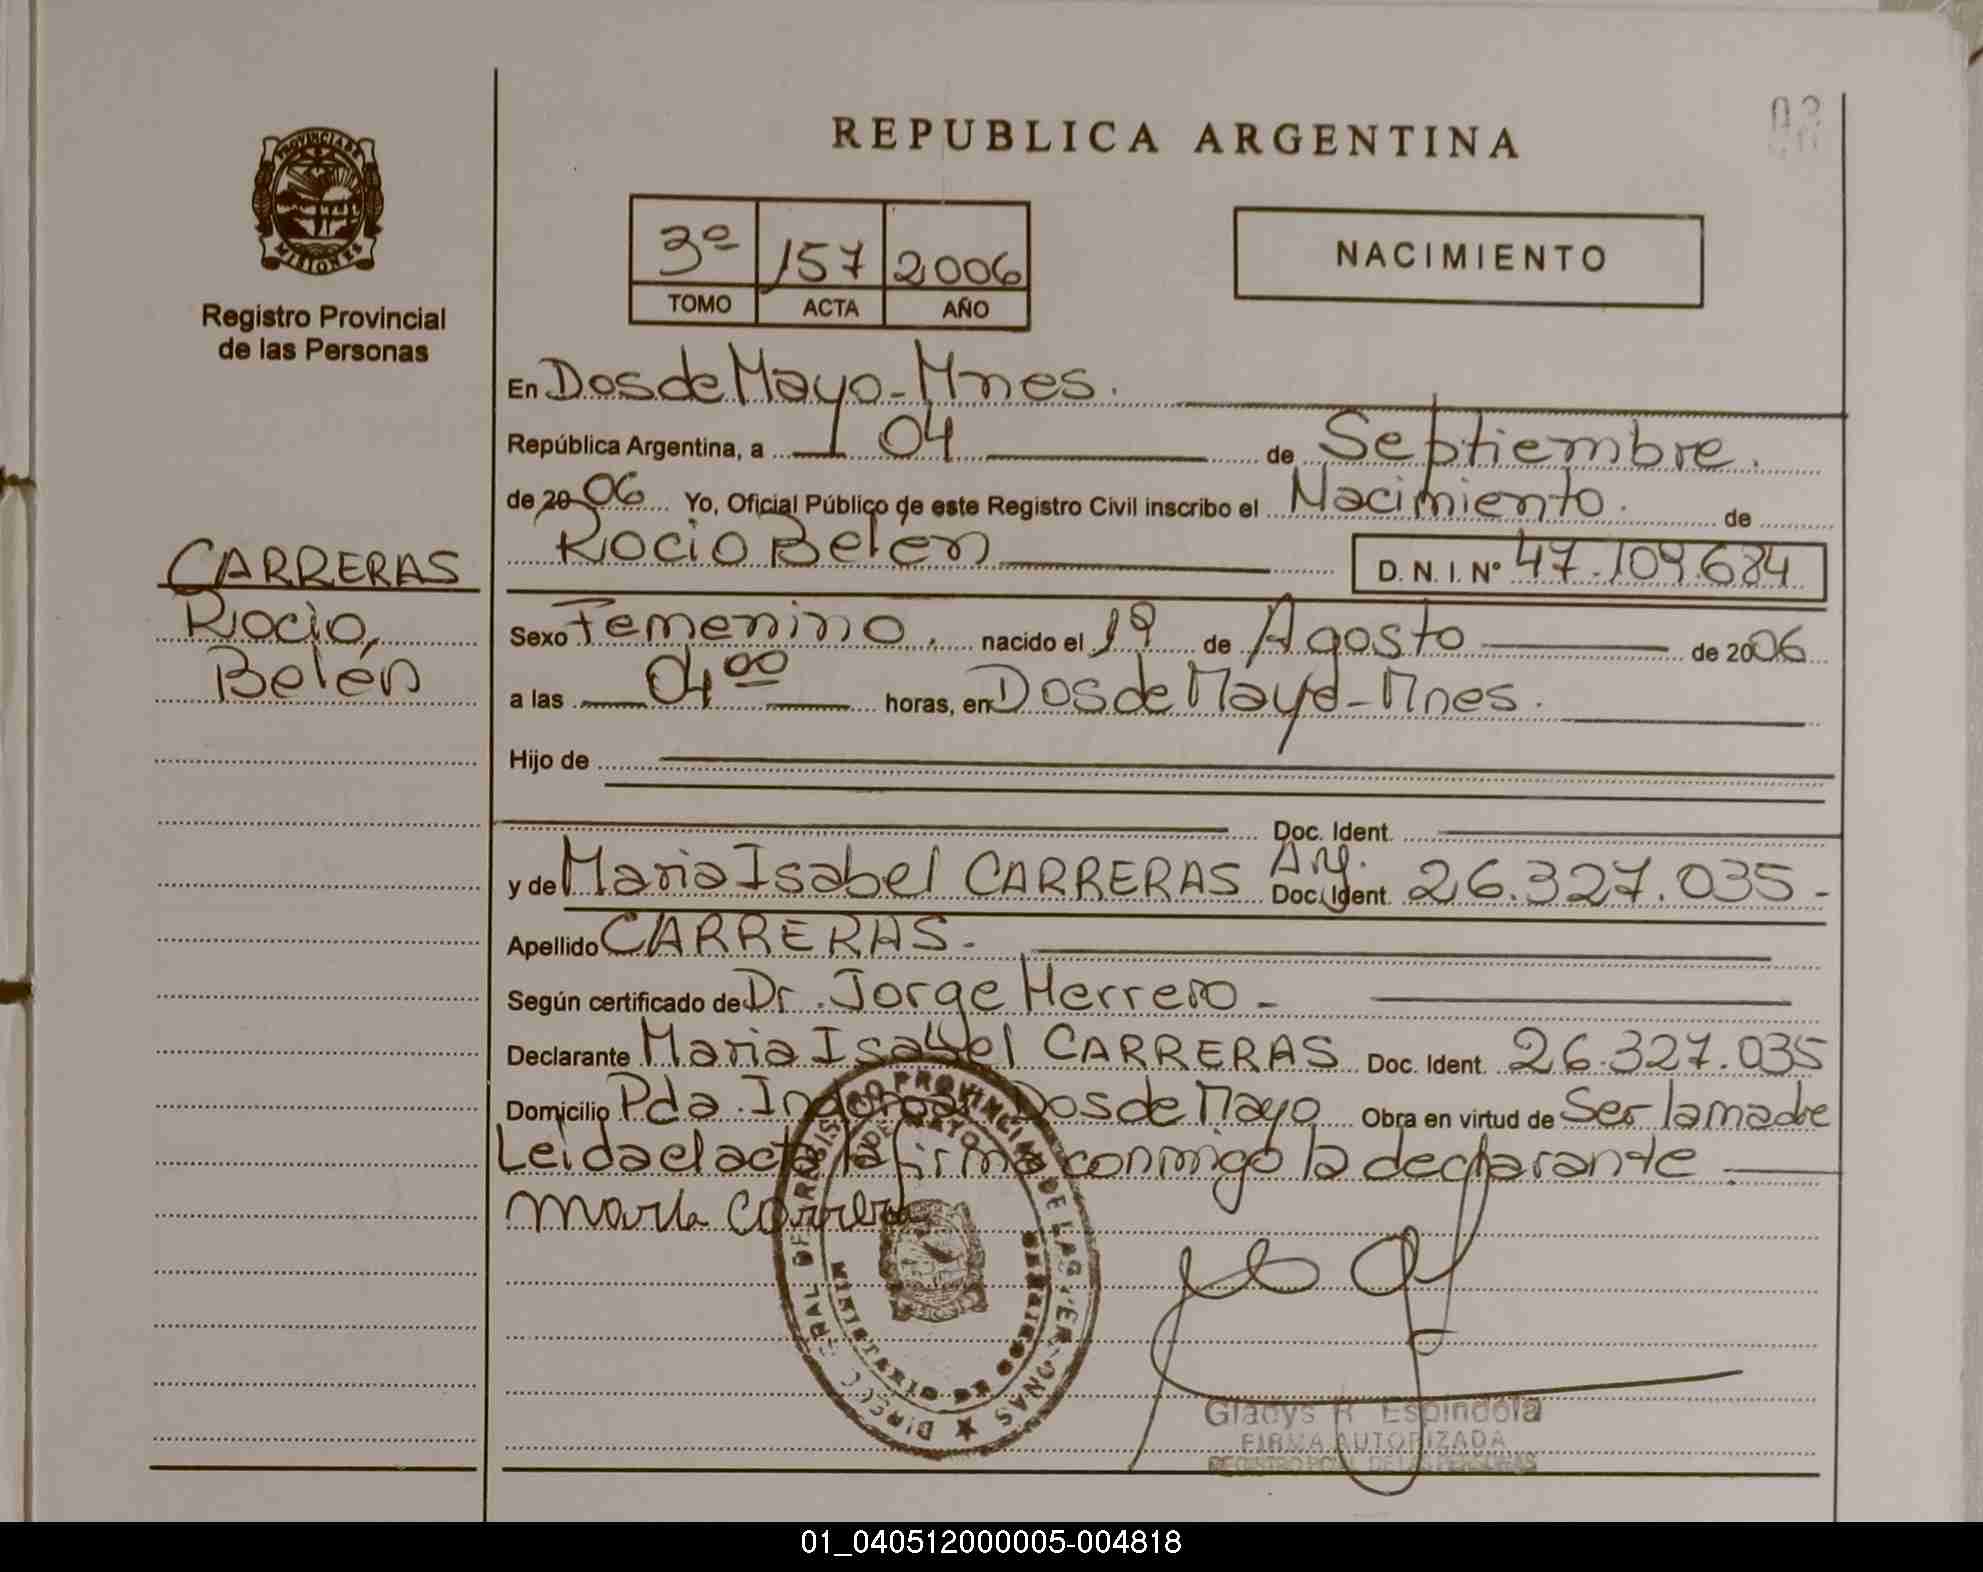 REPUBLICA ARGENTINA
PROVINCIA DE
MISIONES
Registro Provincial
de las Personas
3º 157 2006
TOMO ACTA AÑO
NACIMIENTO
En Dos de Mayo - Mnes.
República Argentina, a 04 de Septiembre.
de 2006 Yo, Oficial Público de este Registro Civil inscribo el Nacimiento. de
Rocio Belen D. N. I. Nº 47.109.684
CARRERAS
Rocio,
Belén
Sexo Femenino, nacido el 19 de Agosto de 2006
a las 04 00 horas, en Dos de Mayo - Mnes.
Hijo de
Doc. Ident.
y de Maria Isabel CARRERAS Doc. Ident. Arg. 26.327.035 -
Apellido CARRERAS -
Según certificado de Dr. Jorge Herrero -
Declarante Maria Isabel CARRERAS Doc. Ident. 26.327.035
Domicilio Pda. Dos de Mayo Obra en virtud de Ser la madre
Leida el acta la firma conmigo la declarante
Gladys R. Espindola
FIRMA AUTORIZADA
REGISTRO PCIAL. DE LAS PERSONAS
01_040512000005-004818